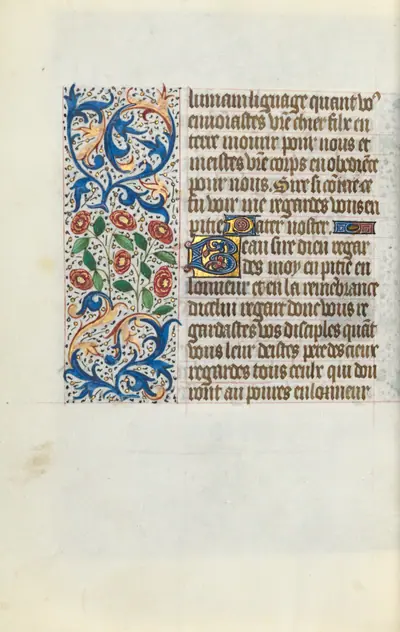 lumain lignage quant vo9
enuoiastes vr̄e chier filz en
terre mourir pour nous et
meistes vr̄e corps en obediēce
pour nous. Sire si cōme ce
fu voir me regardes vous en
pitie. Pater noster
Beau sire dieu regar
des moy en pitie en
lonneur et en la remembrance
dicelui regart dont vous re
gardastes vos disciples quāt
vous leur deistes pere des cieux
regardes tous ceulx qui don
ront au poures en lonneur